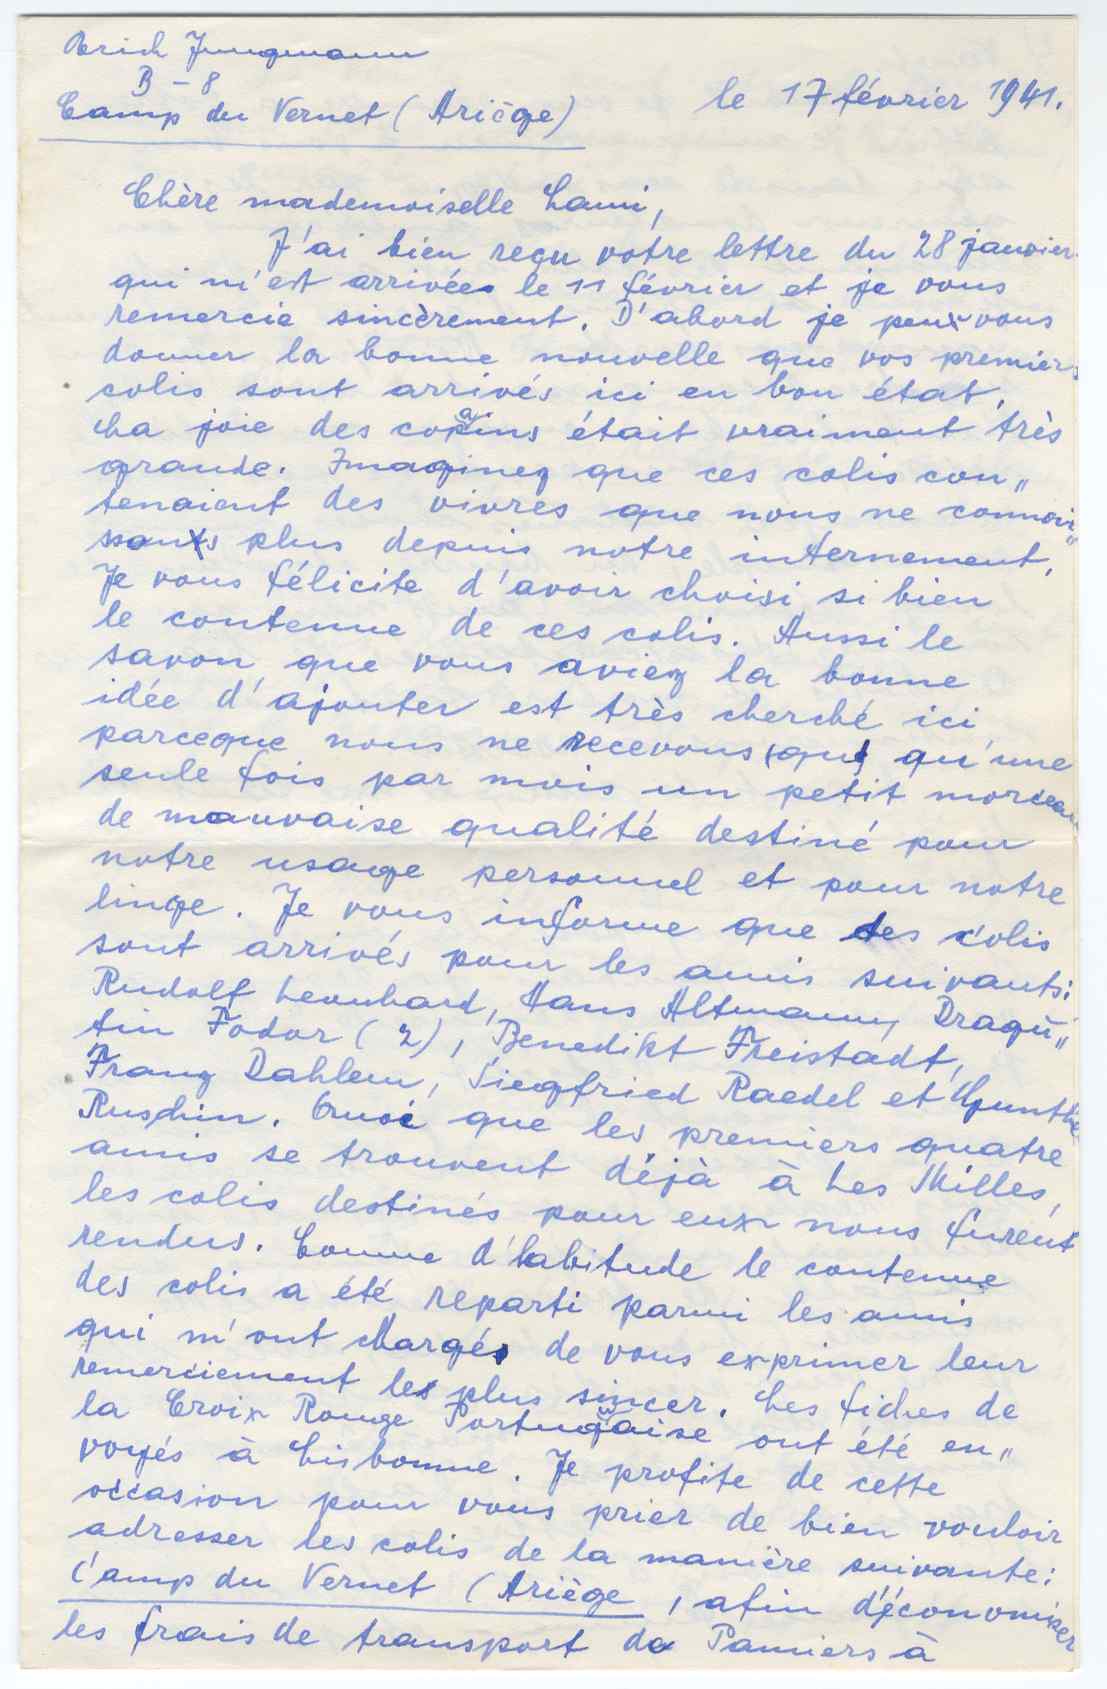 Erich Jungmann
B – 8
Camp du Vernet (Ariège)
le 17 février 1941.
Chère mademoiselle Lami,
J'ai bien reçu votre lettre du 28 janvier
qui m'est arrivée le 11 février et je vous
remercie sincèrement. D'abord je peux vous
donner la bonne nouvelle que vos premiers
colis sont arrivés ici en bon état.
La joie des copains était vraiment très
grande. Imaginez que ces colis con„
tenaient des vivres que nous ne connai„
ssons plus depuis notre internement.
Je vous félicite d'avoir choisi si bien
le contenue de ces colis. Aussi le
savon que vous aviez la bonne
idée d'ajouter est très cherché ici
parceque nous ne recevons (que) qu'une
seule fois par mois un petit morceau
de mauvaise qualité destiné pour
notre usage personnel et pour notre
linge. Je vous informe que des colis
sont arrivés pour les amis suivants:
Rudolf Leonhard, Hans Altmann, Dragu„
tin Fodor (2), Benedikt Freistadt,
Franz Dahlem, Siegfried Raedel et Gunther
Ruschin. Quoi que les premiers quatre
amis se trouvent déjà à Les Milles,
les colis destinés pour eux nous furent
rendus. Comme d'habitude le contenue
des colis a été reparti parmi les amis
qui m'ont chargé de vous exprimer leur
remerciement le plus sincer. Les fiches de
la Croix Rouge Portugaise ont été en„
voyés à Lisbonne. Je profite de cette
occasion pour vous prier de bien vouloir
adresser les colis de la manière suivante:
Camp du Vernet (Ariège, afin d'économiser
les frais de transport de Pamiers à